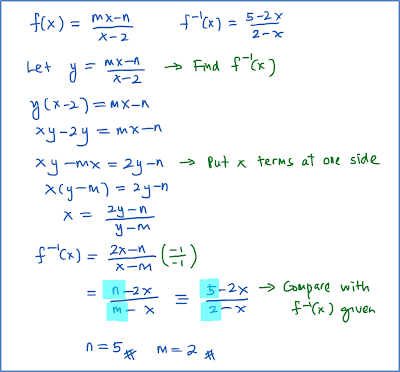 f(x) = mx-n / x-2    f⁻¹(x) = 5-2x / 2-x
Let y = mx-n / x-2 → Find f⁻¹(x)
y(x-2) = mx-n
xy-2y = mx-n
xy-mx = 2y-n → Put x terms at one side
x(y-m) = 2y-n
x = 2y-n / y-m
f⁻¹(x) = 2x-n / x-m (-1 / -1)
= n-2x / m-x ≡ 5-2x / 2-x → Compare with f⁻¹(x) given
n=5 # m=2 #